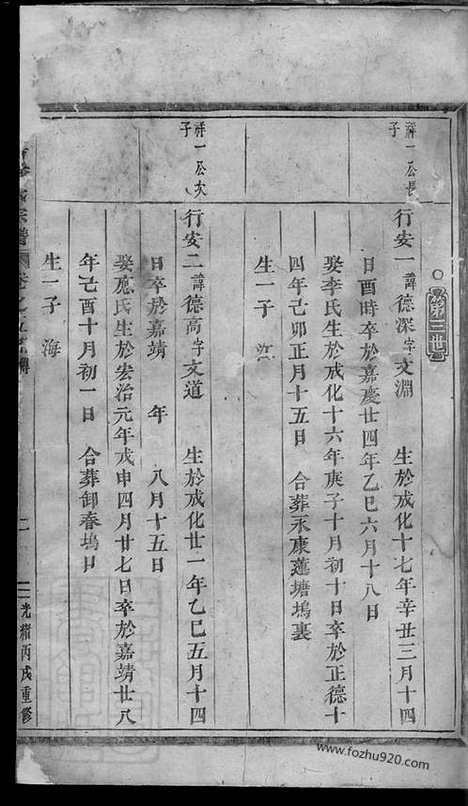 第三世
祥一公長
子
行安一諱德深字文淵 生於成化十七年辛丑三月十四
日酉時卒於嘉慶廿四年乙巳六月十八日
娶李氏生於成化十六年庚子十月初十日卒於正德十
四年己卯正月十五日 合葬永康蓮塘塢裏
生一子
祥一公次
子
行安二諱德高字文道 生於成化廿一年乙巳五月十四
日卒於嘉靖 年 八月十五日
娶應氏生於宏治元年戊申四月廿七日卒於嘉靖廿八
年己酉十月初一日 合葬卸春塢日
生一子 海
宗譜
二
光緒丙戌重修
www.fozhu920.com